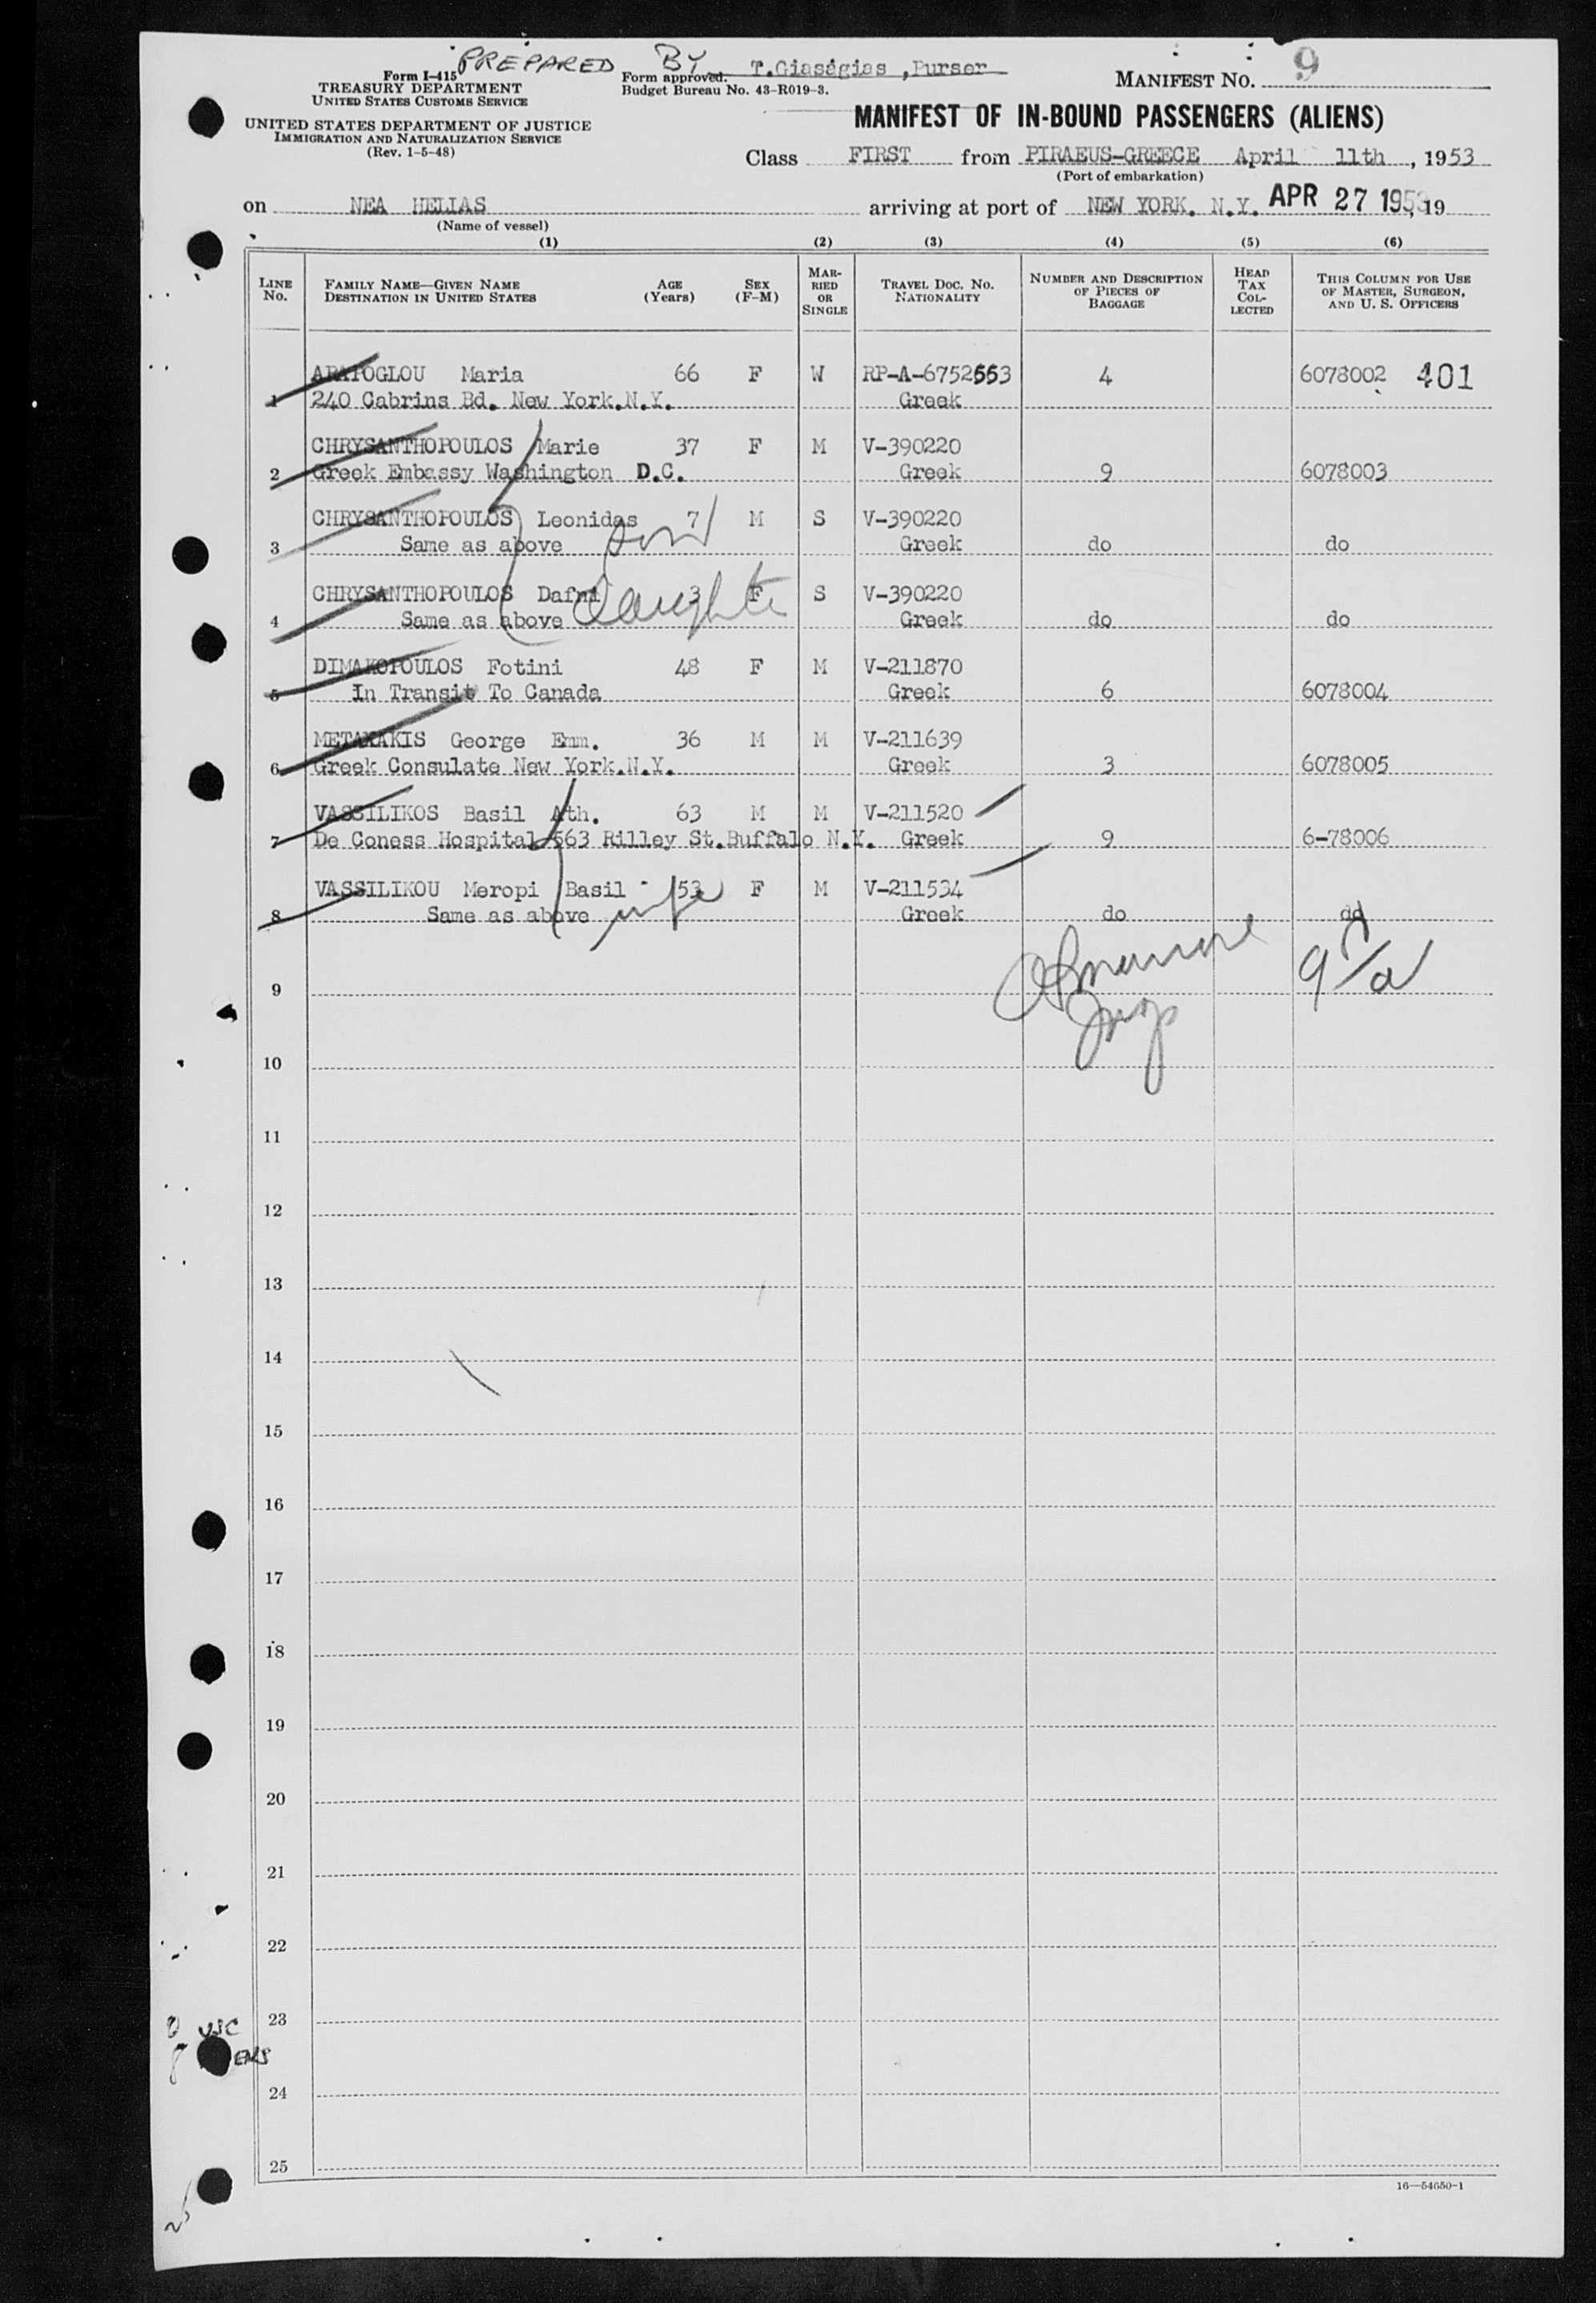 PREPARED BY T.Giaságias ,Purser
Form I-415
TREASURY DEPARTMENT
UNITED STATES CUSTOMS SERVICE
UNITED STATES DEPARTMENT OF JUSTICE
IMMIGRATION AND NATURALIZATION SERVICE
(Rev. 1-5-48)
Form approved.
Budget Bureau No. 43-R019-3.
MANIFEST NO. 9
MANIFEST OF IN-BOUND PASSENGERS (ALIENS)
Class FIRST from PIRAEUS-GREECE April 11th , 1953
(Port of embarkation)
on NEA HELLAS arriving at port of NEW YORK. N.Y. APR 27 1953, 19
(Name of vessel)
(1) (2) (3) (4) (5) (6)
LINE No. FAMILY NAME—GIVEN NAME DESTINATION IN UNITED STATES AGE (Years) SEX (F-M) MARRIED OR SINGLE TRAVEL DOC. NO. NATIONALITY NUMBER AND DESCRIPTION OF PIECES OF BAGGAGE HEAD TAX COLLECTED THIS COLUMN FOR USE OF MASTER, SURGEON, AND U. S. OFFICERS
ARATOGLOU Maria 66 F W RP-A-6752553 4 6078002 401
1 240 Cabrins Bd. New York.N.Y. Greek
CHRYSANTHOPOULOS Marie 37 F M V-390220
2 Greek Embassy Washington D.C. Greek 9 6078003
CHRYSANTHOPOULOS Leonidas 7 M S V-390220
3 Same as above son Greek do do
CHRYSANTHOPOULOS Dafni 3 F S V-390220
4 Same as above Daughte Greek do do
DIMAKOPOULOS Fotini 48 F M V-211870
5 In Transit To Canada Greek 6 6078004
METAXAKIS George Emm. 36 M M V-211639
6 Greek Consulate New York.N.Y. Greek 3 6078005
VASSILIKOS Basil Ath. 63 M M V-211520
7 De Coness Hospital 563 Rilley St.Buffalo N.Y. Greek 9 6-78006
VASSILIKOU Meropi Basil 53 F M V-211534
8 Same as above wife Greek do do
9
10
11
12
13
14
15
16
17
18
19
20
21
22
23
24
25
16—54650-1